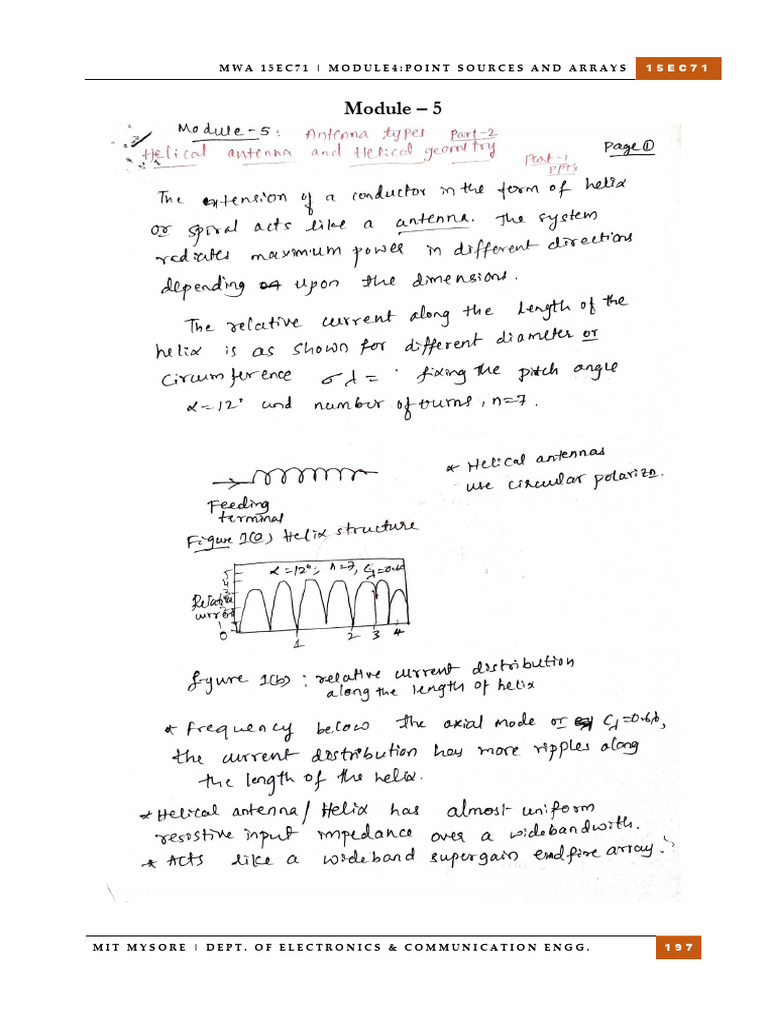 MWA 15EC71 | MODULE4:POINT SOURCES AND ARRAYS 15EC71
Module – 5
Module-5: Antenna types Part-2
Helical antenna and Helical geometry Part-1 PPTs Page ①
The extension of a conductor in the form of helix
or spiral acts like a antenna. The system
radiates maximum power in different directions
depending upon the dimensions.
The relative current along the length of the
helix is as shown for different diameter or
circumference λ = fixing the pitch angle
α=12° and number of turns, n=7.
* Helical antennas
use circular polarizn.
Feeding
terminal
Figure 1(a) Helix structure
α=12°, n=7, Cλ=0.60
Relative
current
4
1
0
1 2 3 4
figure 1(b): relative current distribution
along the length of helix
* Frequency below the axial mode or Cλ=0.60,
the current distribution has more ripples along
the length of the helix.
* Helical antenna/Helix has almost uniform
resistive input impedance over a widebandwith.
* Acts like a wideband supergain endfire array.
MIT MYSORE | DEPT. OF ELECTRONICS & COMMUNICATION ENGG. 197